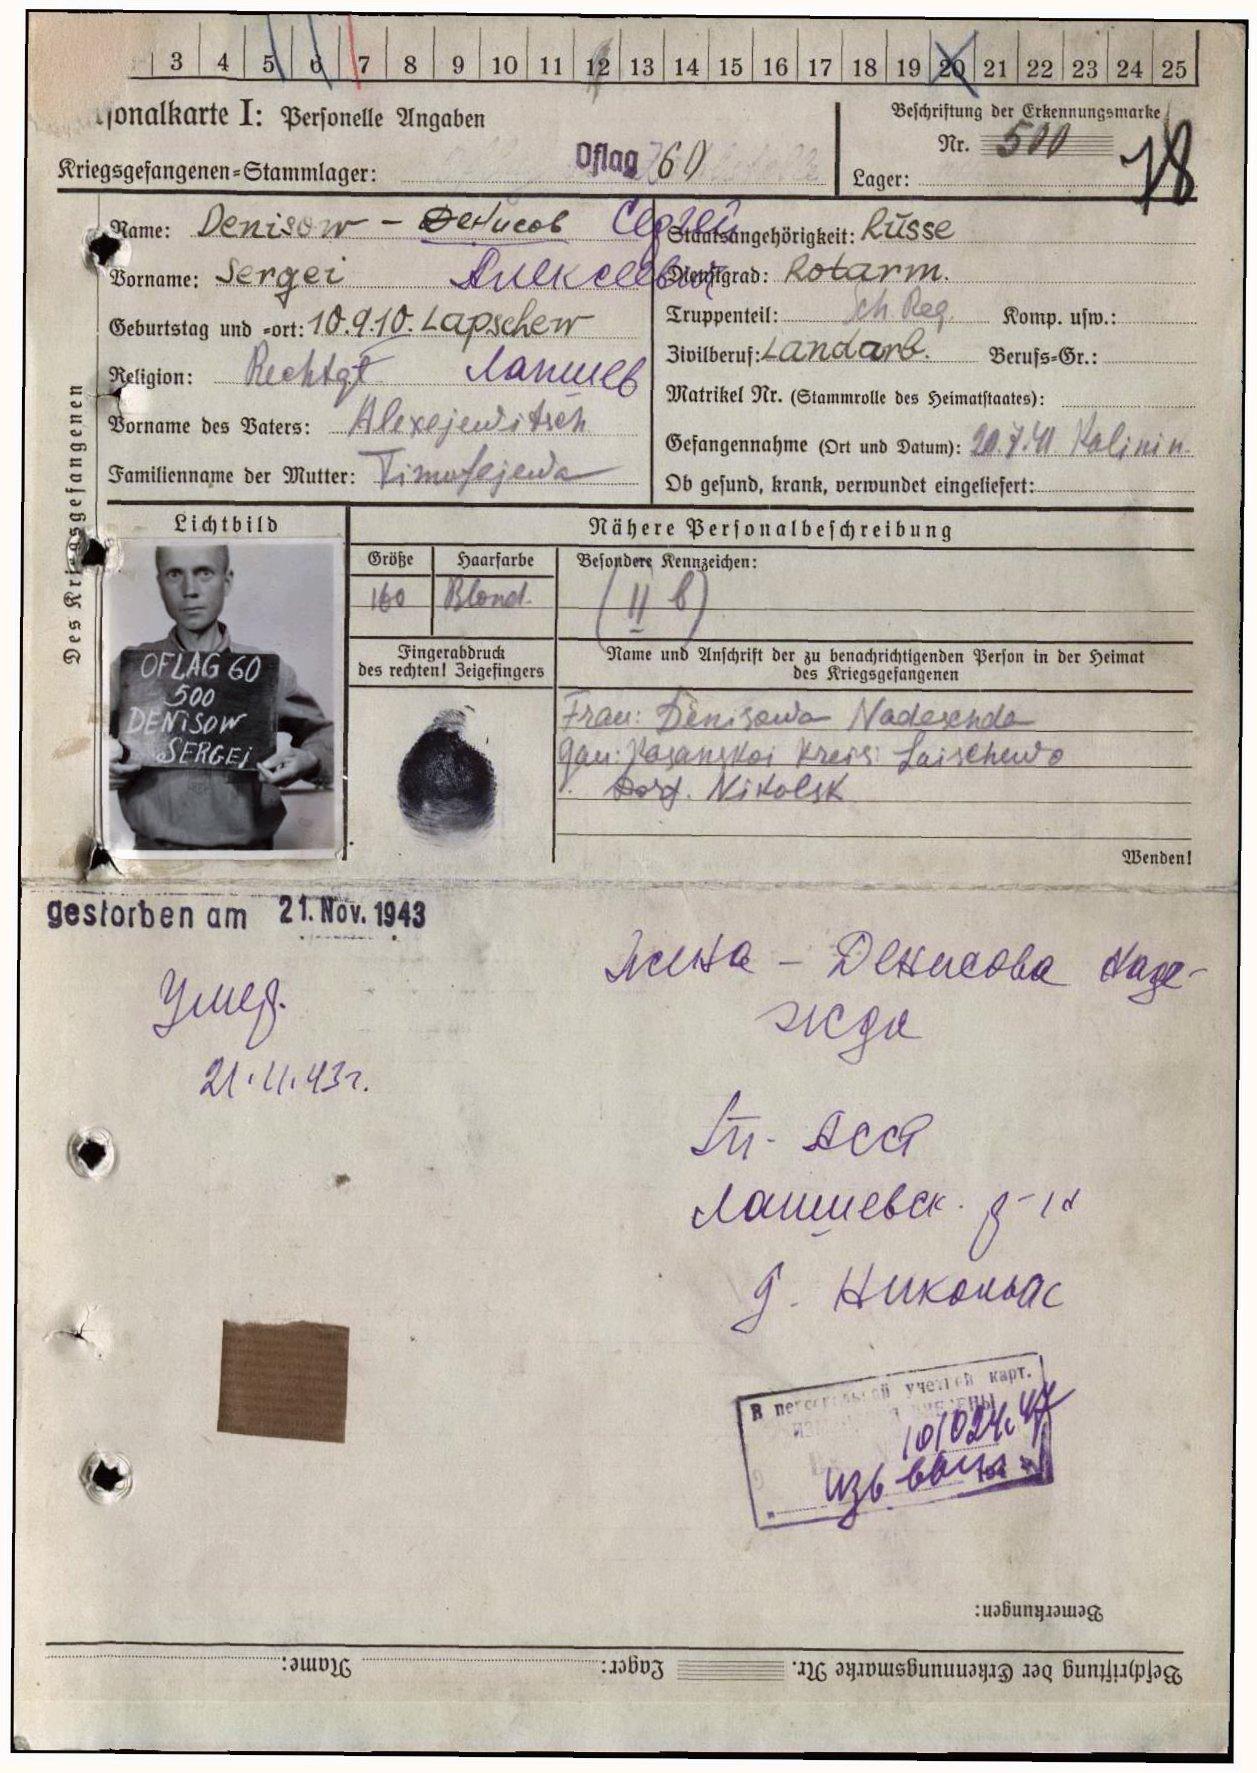 3 4 5 6 7 8 9 10 11 12 13 14 15 16 17 18 19 20 21 22 23 24 25
sonalkarte I: Personelle Angaben
Beschriftung der Erkennungsmarke
Nr. 500
Kriegsgefangenen-Stammlager: Oflag 60
Lager:
78
Name: Denisow - Денисов Сергей
Vorname: Sergei Алексеевич
Geburtstag und -ort: 10.9.10. Lapschew
Religion: Rechtgl. Лапшев
Vorname des Vaters: Alexejewitsch
Familienname der Mutter: Timofejewa
Staatsangehörigkeit: Russe
Dienstgrad: Rotarm.
Truppenteil: Sch. Reg. Komp. usw.:
Zivilberuf: Landarb. Berufs-Gr.:
Matrikel Nr. (Stammrolle des Heimatstaates):
Gefangennahme (Ort und Datum): 20.7.41. Kalinin.
Ob gesund, krank, verwundet eingeliefert:
Des Kriegsgefangenen
Lichtbild
OFLAG 60
500
DENISOW
SERGEI
Nähere Personalbeschreibung
Größe Haarfarbe Besondere Kennzeichen:
160 Blond. (II b)
Fingerabdruck
des rechten! Zeigefingers
Name und Anschrift der zu benachrichtigenden Person in der Heimat
des Kriegsgefangenen
Frau: Denisowa Nadeschda
Gau: Kasanskoi Kreis: Laischewo
Dorf. Nikolsk
Wenden!
gestorben am 21. Nov. 1943
Умер.
21.11.43г.
Жена - Денисова Наде-
жда
АССР
Лаишевск. р-н
д. Никольск
В персональной учетной карт.
101024с 47
Bemerkungen:
Beschriftung der Erkennungsmarke Nr. Lager: Name: